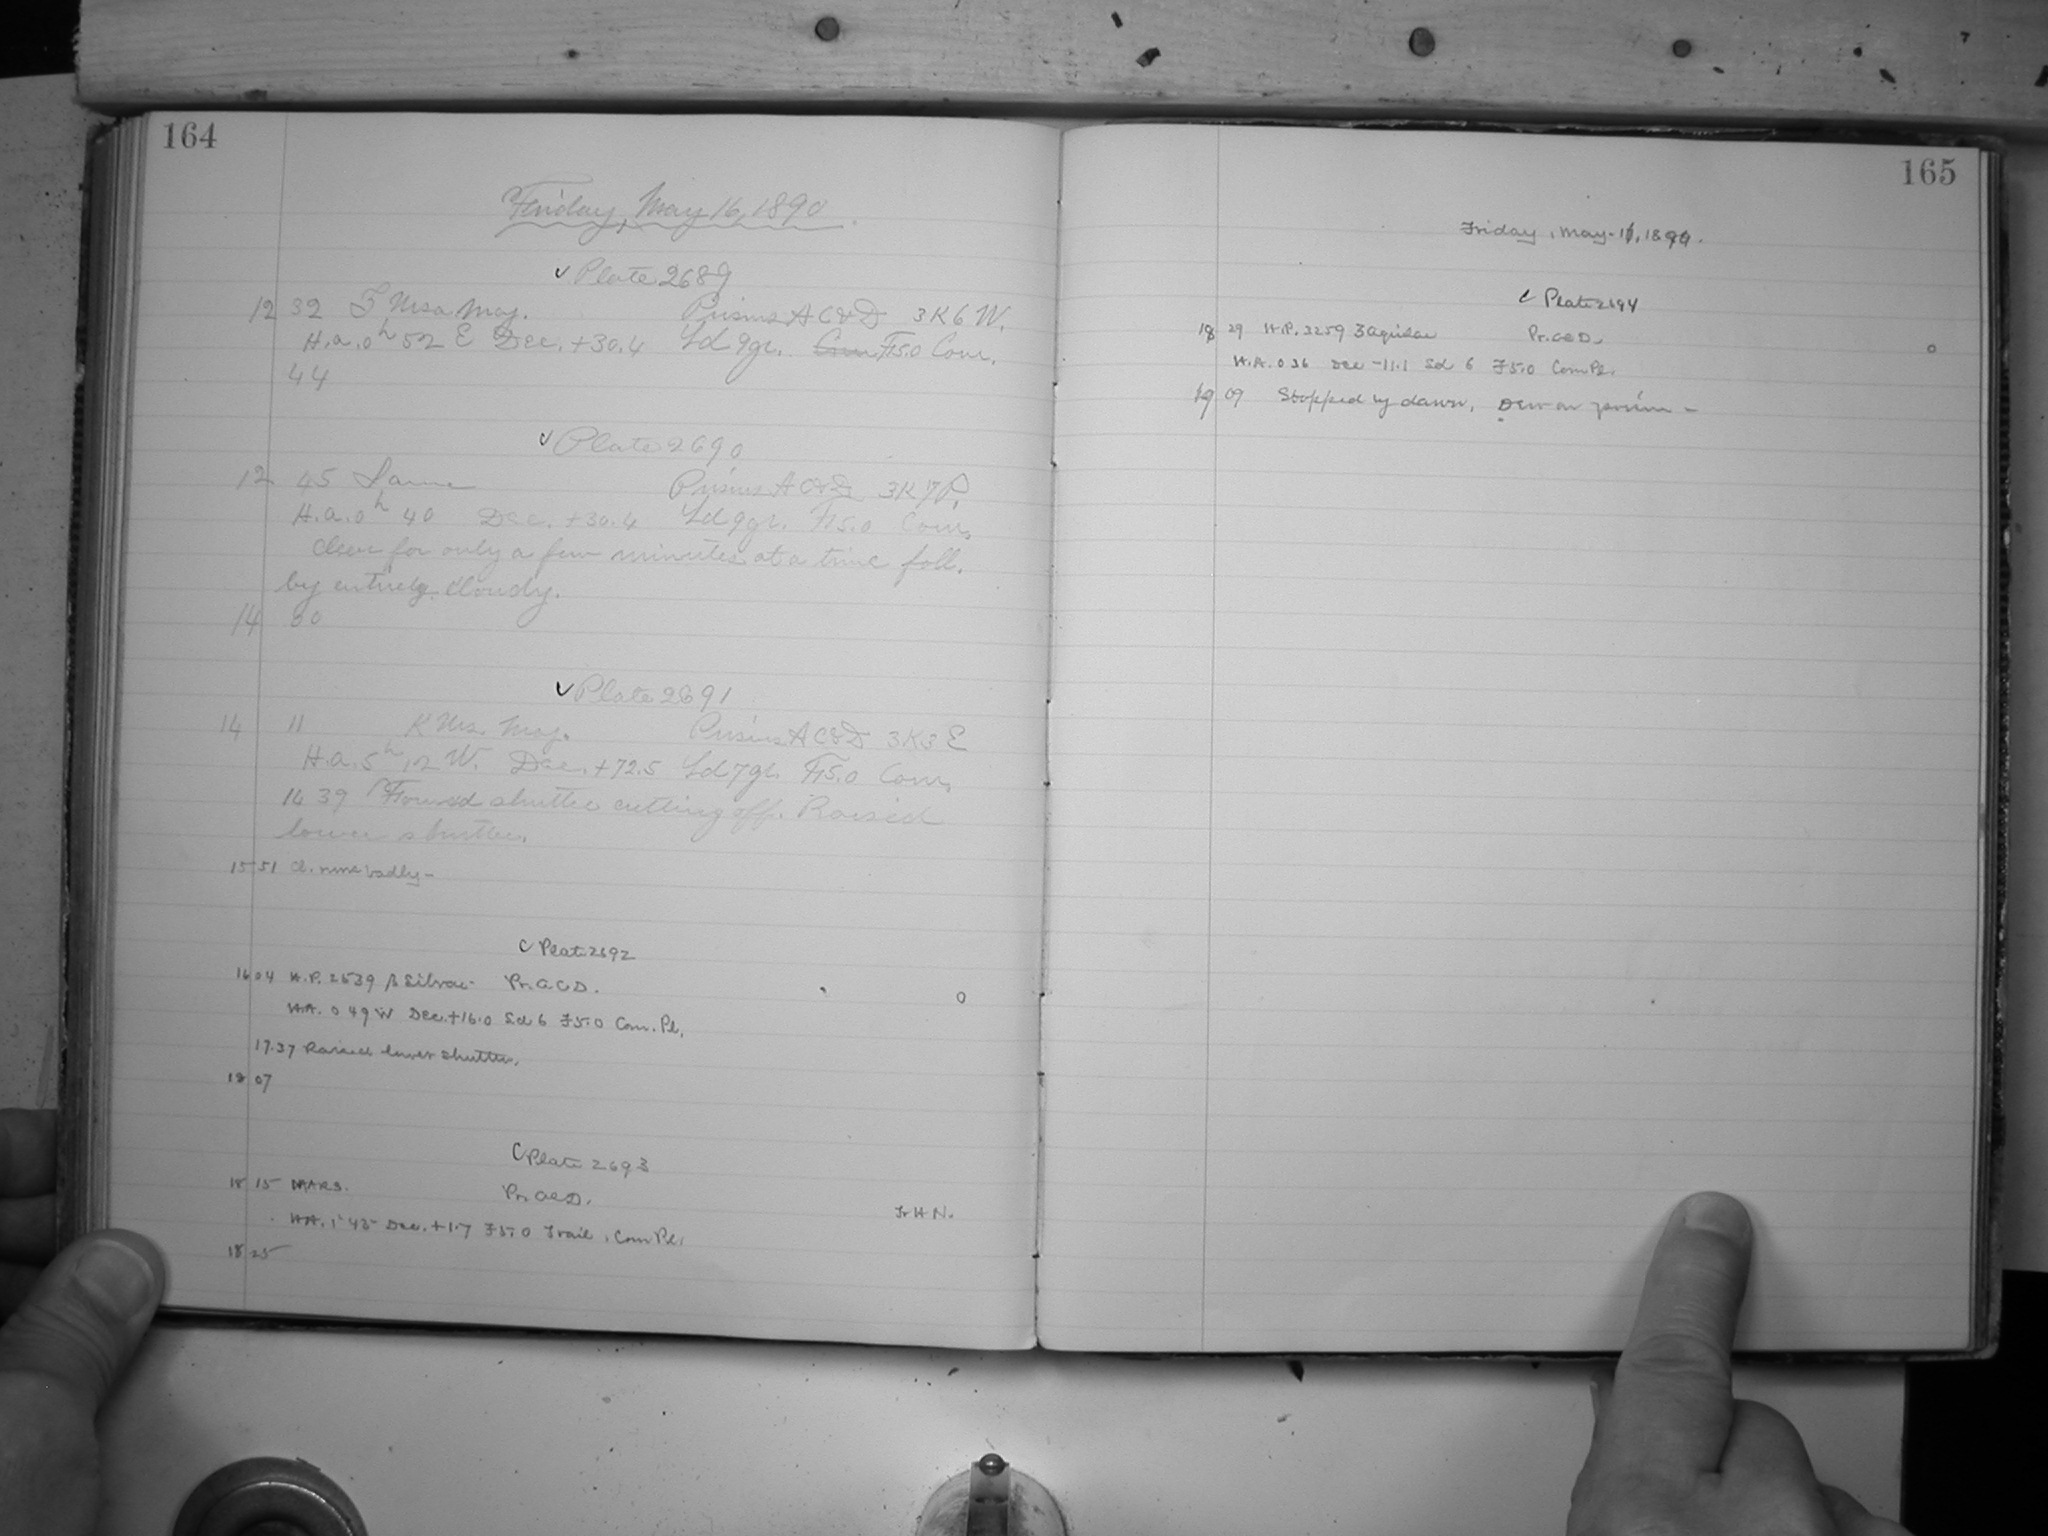 164
Friday, May 16, 1890.
✓ Plate 2689
12 32 Ursa Maj. Prisms A C & D 3K6 W.
H.a. 0h 52 E Dec. +30.4 Sd 9gr. F15.0 Com.
44
✓ Plate 2690
12 45 Same Prisms A C & D 3K7
H.a. 0h 40 Dec. +30.4 Sd 9gr. F15.0 Com.
clear for only a few minutes at a time foll.
by entirely cloudy.
14 00
✓ Plate 2691
14 11 K Urs. Maj. Prisms A C & D 3K3 E
H.a. 5h 12 W. Dec. +72.5 Sd 7gr. F15.0 Com.
14 39 Found shutter cutting off. Raised
lower shutter.
15 51 Cl. runs badly-
Plate 2692
16 04 H.P. 2539 β Pr. A C D. 0
H.A. 0 49 W Dec. +16.0 Sd 6 F5.0 Com. Pl.
17.37 Raised lower shutter.
18 07
Plate 2693
18 15 MARS. Pr. A C D. Fr H N.
H.A. 1 45 Dec. +1.7 F5.0 Trail. Com Pl.
18 25
165
Friday, May-16, 1890.
Plate 2694
18 29 H.P. 3259 3 Aquilae Pr. A C D. 0
H.A. 0 36 Dec -11.1 Sd 6 F5.0 Com Pl.
19 09 Stopped by dawn. Dew on prism -